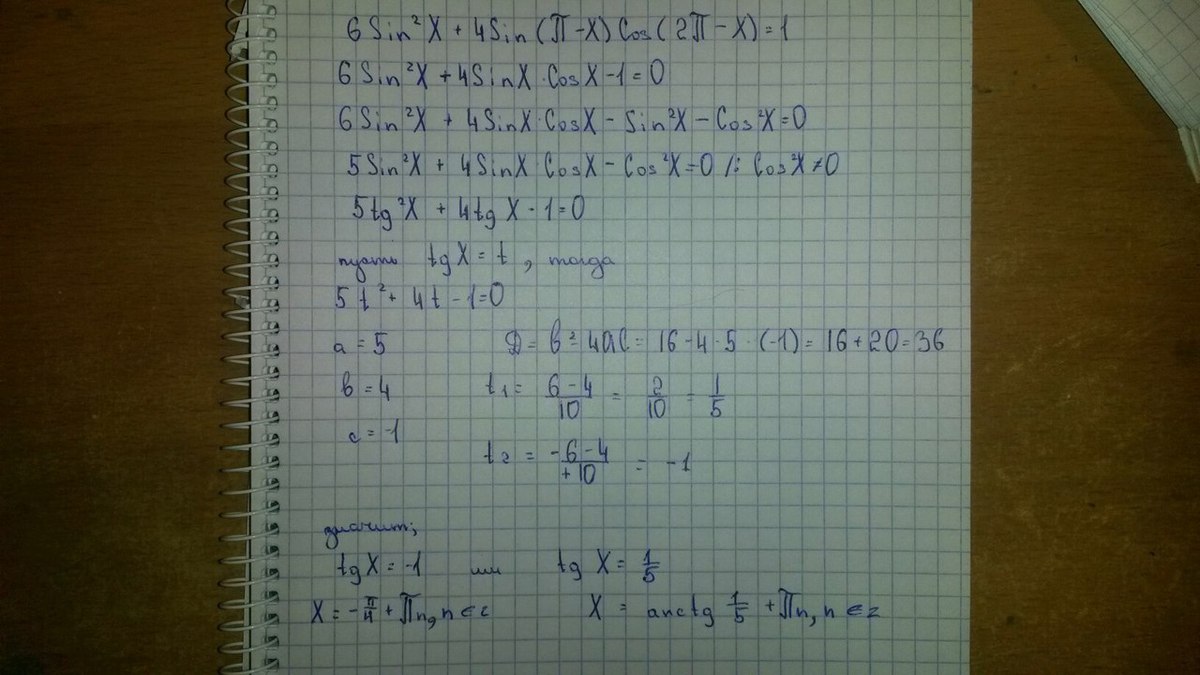 6Sin²X + 4Sin(π-X)Cos(2π-X)=1
6Sin²X + 4SinX·CosX-1=0
6Sin²X + 4SinX·CosX - Sin²X - Cos²X=0
5Sin²X + 4SinX CosX - Cos²X=0 /: Cos²X≠0
5tg²X + 4tgX - 1=0
пусть tgX = t, тогда
5t² + 4t - 1=0
a = 5 D = b² - 4ac = 16 - 4·5·(-1) = 16+20=36
b = 4 t₁ = (6-4)/10 = 2/10 = 1/5
c = -1
t₂ = (-6-4)/(+10) = -1
значит;
tgX = -1 или tgX = 1/5
X = -π/4 + πn, n∈z X = arctg 1/5 + πn, n∈z